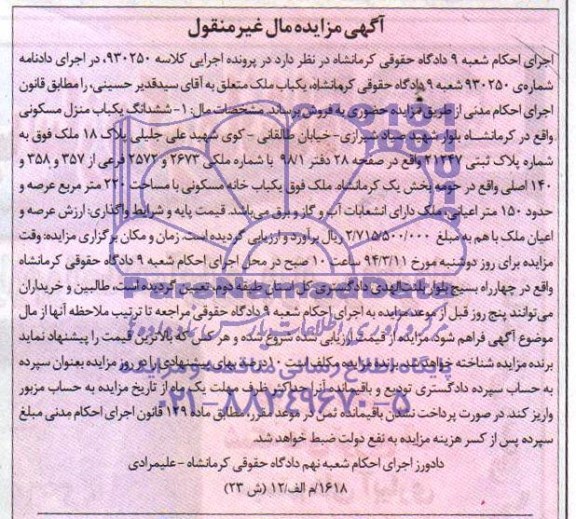 آگهی مزایده مال غیر منقول
اجرای احکام شعبه ۹ دادگاه حقوقی کرمانشاه در نظر دارد در پرونده اجرایی کلاسه ۹۳۰۲۵۰، در اجرای دادنامه
شماره‌ی ۹۳۰۲۵۰ شعبه ۹ دادگاه حقوقی کرمانشاه، یکباب ملک متعلق به آقای سیدقدیر حسینی، را مطابق قانون
اجرای احکام مدنی از طریق مزایده حضوری به فروش برساند. مشخصات مال: ۱- ششدانگ یکباب منزل مسکونی
واقع در کرمانشاه بلوار شهید صیاد شیرازی- خیابان طالقانی - کوی شهید علی جلیلی پلاک ۱۸ ملک فوق به
شماره پلاک ثبتی ۲۱۲۴۷ واقع در صفحه ۲۸ دفتر ۹۸/۱ با شماره ملکی ۲۶۷۳ و ۲۵۷۲ فرعی از ۳۵۷ و ۳۵۸ و
۱۴۰ اصلی واقع در حومه بخش یک کرمانشاه. ملک فوق یکباب خانه مسکونی با مساحت ۲۲۰ متر مربع عرصه و
حدود ۱۵۰ متر اعیانی. ملک دارای انشعابات آب و گاز و برق می‌باشد. قیمت پایه و شرایط واگذاری: ارزش عرصه و
اعیان ملک با هم به مبلغ ۲/۷۱۵/۵۰۰/۰۰۰ ریال برآورد و ارزیابی گردیده است. زمان و مکان برگزاری مزایده: وقت
مزایده برای روز دوشنبه مورخ ۹۴/۳/۱۱ ساعت ۱۰ صبح در محل اجرای احکام شعبه ۹ دادگاه حقوقی کرمانشاه
واقع در چهارراه بسیج بلوار بنت‌الهدی دادگستری کل استان طبقه دوم، تعیین گردیده است. طالبین و خریداران
می‌توانند پنج روز قبل از موعد مزایده به اجرای احکام شعبه ۹ دادگاه حقوقی مراجعه تا ترتیب ملاحظه آنها از مال
موضوع آگهی فراهم شود. مزایده از قیمت ارزیابی شده شروع شده و هر کس که بالاترین قیمت را پیشنهاد نماید
برنده مزایده شناخته خواهد شد. برنده مزایده مکلف است ۱۰ درصد بهای پیشنهادی را در روز مزایده بعنوان سپرده
به حساب سپرده دادگستری تودیع و باقیمانده آنرا حداکثر ظرف مهلت یک ماه از تاریخ مزایده به حساب مزبور
واریز کند. در صورت پرداخت نشدن باقیمانده ثمن در موعد مقرر، مطابق ماده ۱۲۹ قانون اجرای احکام مدنی مبلغ
سپرده پس از کسر هزینه مزایده به نفع دولت ضبط خواهد شد.
دادورز اجرای احکام شعبه نهم دادگاه حقوقی کرمانشاه - علیمرادی
۱۶۱۸/م الف/۱۲ (ش ۲۳)
ParsNamadData
مرکز فرآوری اطلاعات پارس نماد داده‌ها
پایگاه اطلاع رسانی مناقصه و مزایده
۰۲۱-۸۸۳۴۹۶۷۰-۵